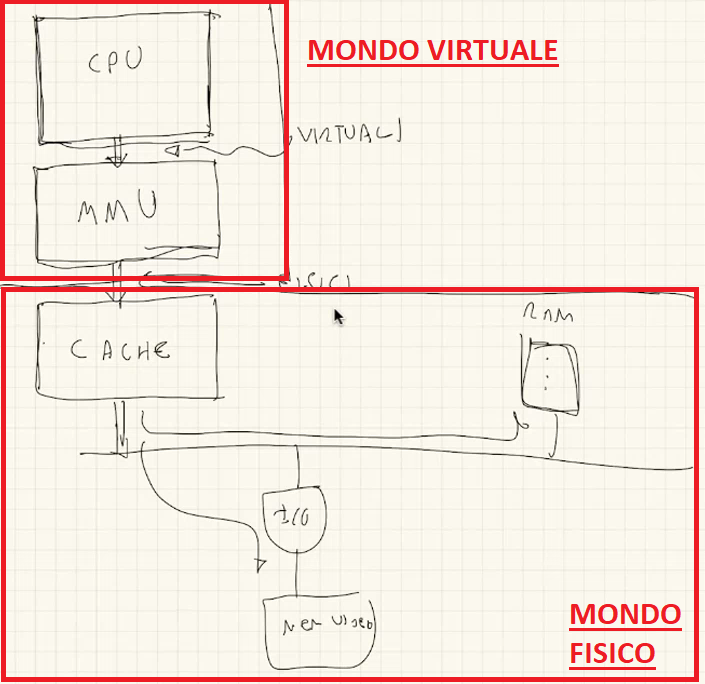 CPU
MONDO VIRTUALE
VIRTUALI
MMU
FISICI
CACHE
RAM
I/O
MEM VIDEO
MONDO
FISICO